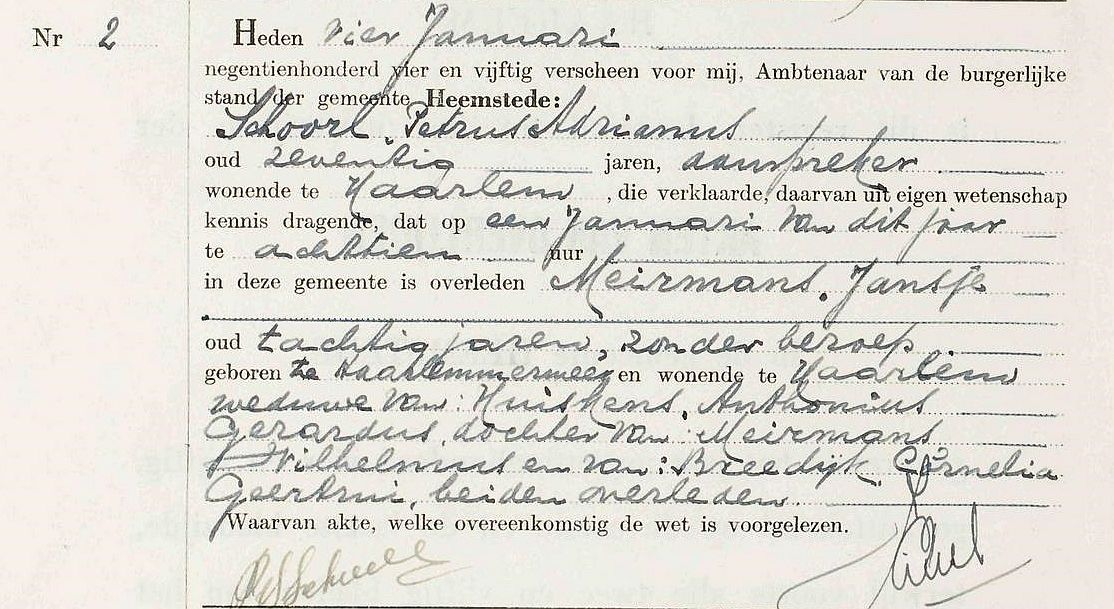 Nr 2 Heden vier Januari
negentienhonderd vier en vijftig verscheen voor mij, Ambtenaar van de burgerlijke
stand der gemeente Heemstede:
Schoorl, Petrus Adrianus
oud zeventig jaren, aanspreker
wonende te Haarlem, die verklaarde, daarvan uit eigen wetenschap
kennis dragende, dat op een Januari van dit jaar
te achttien uur
in deze gemeente is overleden Meirmans, Jansje
oud tachtig jaren, zonder beroep
geboren te Haarlemmermeer en wonende te Haarlem
weduwe van: Huiskens, Anthonius
Gerardus, dochter van Meirmans
Wilhelmus en van: Breedijk, Cornelia
Geertrui, beiden overleden.
Waarvan akte, welke overeenkomstig de wet is voorgelezen.